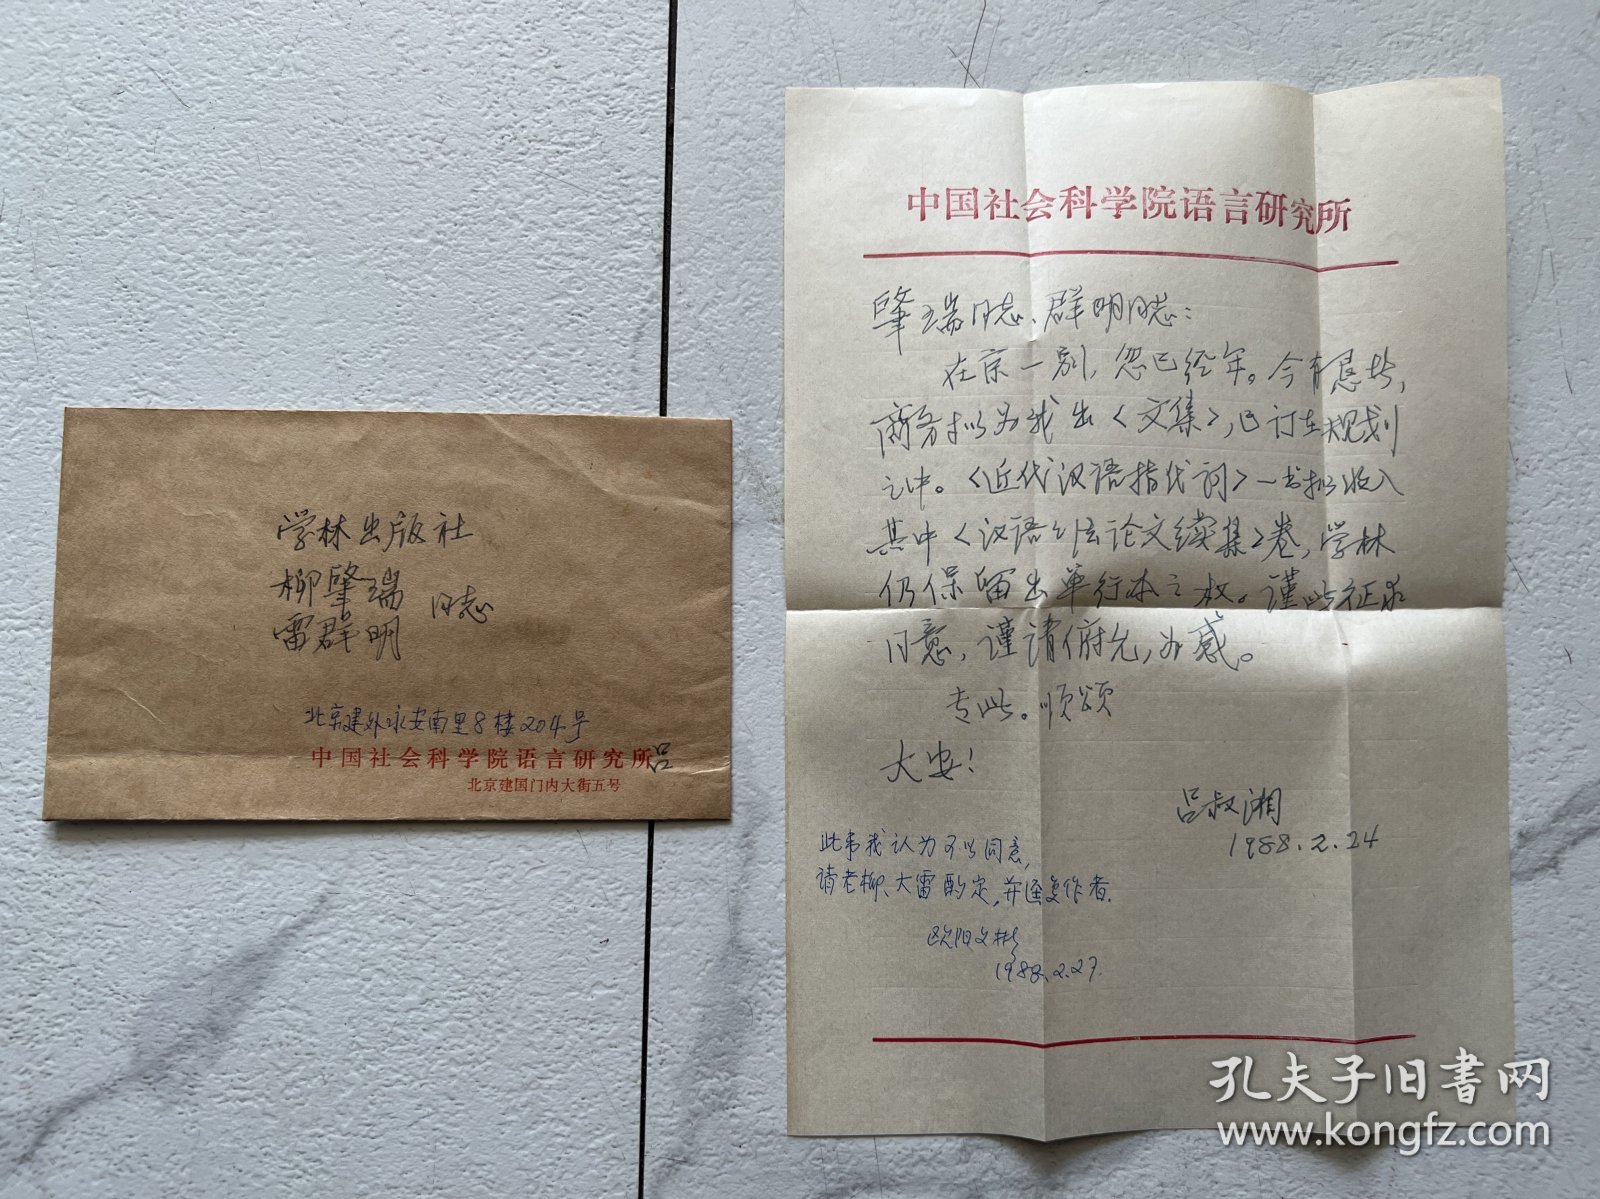 学林出版社
柳肇瑞
雷群明
同志
北京建外永安南里8楼204号
吕
中国社会科学院语言研究所
北京建国门内大街五号
中国社会科学院语言研究所
肇瑞同志、群明同志：
在京一别，忽已经年。今有恳者，
商务拟为我出〈文集〉，已订在规划
之中。〈近代汉语指代词〉一书拟收入
其中〈汉语语法论文续集〉卷，学林
仍保留出单行本之权。谨此征求
同意，谨请俯允，为感。
专此。顺颂
大安！
吕叔湘
1988.2.24
此事我认为可以同意，
请老柳、大雷酌定，并径复作者.
欧阳文彬
1988.2.27.
孔夫子旧书网
www.kongfz.com